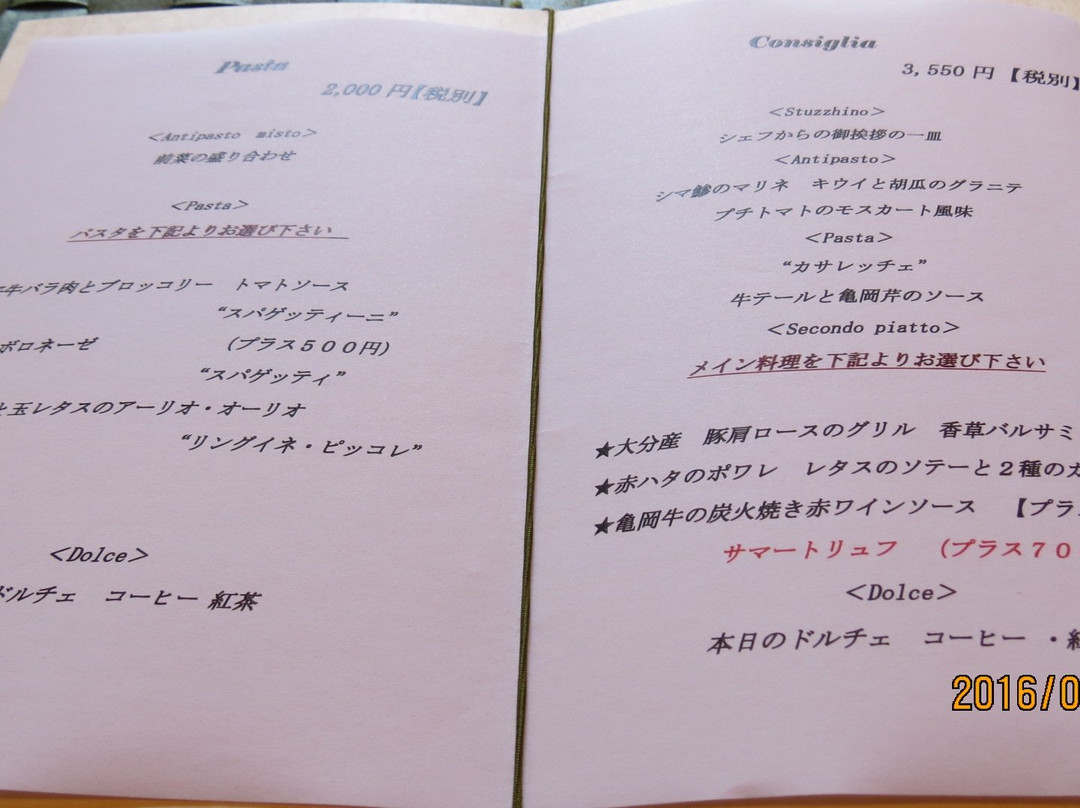 Pasta
2,000 円【税別】
＜Antipasto misto＞
前菜の盛り合わせ
＜Pasta＞
パスタを下記よりお選び下さい
牛バラ肉とブロッコリー　トマトソース
“スパゲッティーニ”
ボロネーゼ　（プラス５００円）
“スパゲッティ”
と玉レタスのアーリオ・オーリオ
“リングイネ・ピッコレ”
＜Dolce＞
ドルチェ　コーヒー 紅茶
Consiglia
3,550 円 【税別】
＜Stuzzhino＞
シェフからの御挨拶の一皿
＜Antipasto＞
シマ鯵のマリネ　キウイと胡瓜のグラニテ
プチトマトのモスカート風味
＜Pasta＞
“カサレッチェ”
牛テールと亀岡芹のソース
＜Secondo piatto＞
メイン料理を下記よりお選び下さい
★大分産　豚肩ロースのグリル　香草バルサミ
★赤ハタのポワレ　レタスのソテーと２種の
★亀岡牛の炭火焼き赤ワインソース　【プラ
サマートリュフ　（プラス７０
＜Dolce＞
本日のドルチェ　コーヒー ・紅
2016/0